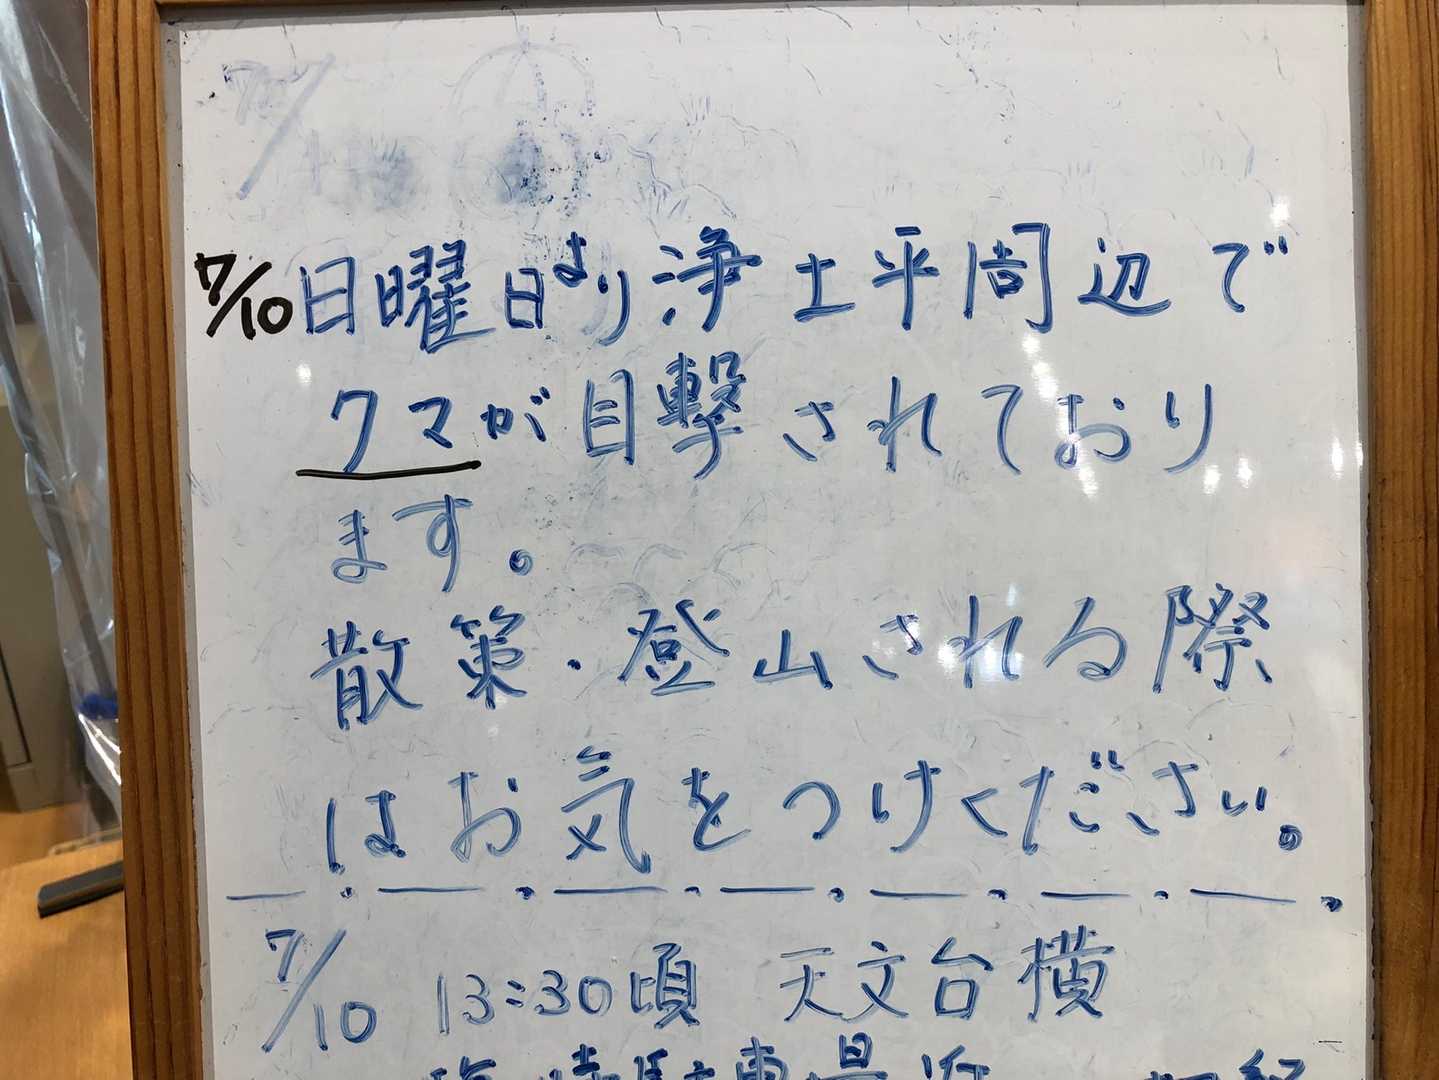 7/10日曜日より浄土平周辺で
クマが目撃されており
ます。
散策・登山される際
はお気をつけください。
7/10 13:30頃 天文台横
臨時駐車場近